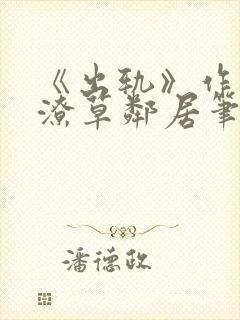 《出轨》作
潦草邻居筆
潘德政